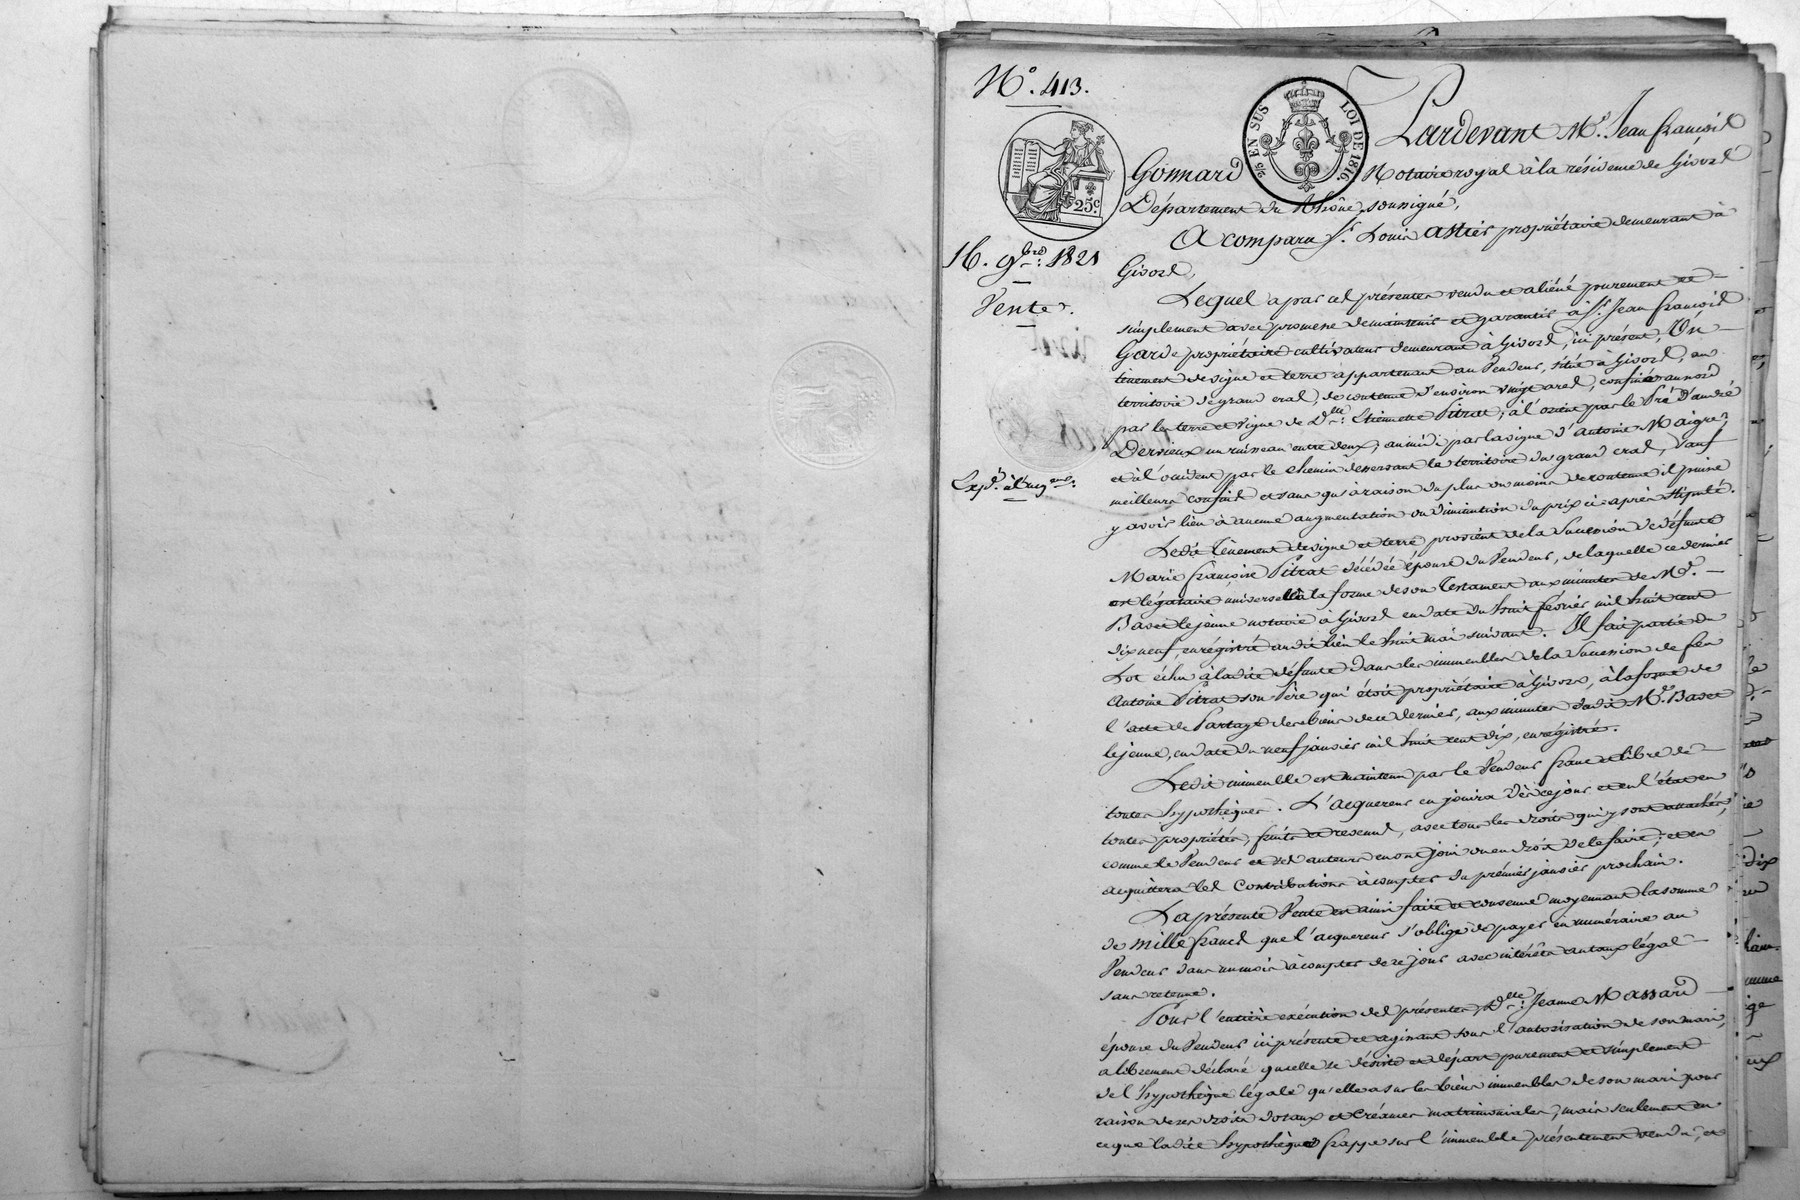 N.° 413.
2/5 EN SUS LOI DE 1816.
25.c
16. 9.bre 1821
Vente.
Exp.é à l'acq.
Pardevant M.e Jean françois
Gonnard Notaire royal à la résidence de Givors
Département du Rhône soussigné,
A comparu S.r Louis Astier propriétaire demeurant à
Givors,
Lequel a par ces présentes vendu et aliéné purement et
simplement avec promesse de maintenir et garantir à S.r Jean françois
Garde propriétaire cultivateur demeurant à Givors, ici présent, Un
tènement de vigne et terre appartenant au Vendeur, situé à Givors, au
territoire de grand cral, de contenue d'environ vingt ares, confiné au nord
par les terre et vigne de D.lle Etiennette Pitrat; à l'orient par le Pré d'andré
Dervieux un ruisseau entre deux, au midi par la vigne d'Antoine Maigre,
et à l'occident par le chemin desservant le territoire du grand cral, sauf
meilleurs confins et sans qu'à raison du plus ou moins de contenue il puisse
y avoir lieu à aucune augmentation ou diminution du prix ci-après stipulé.
Ledit Tènement de vigne et terre provient de la Succession de défunte
Marie françoise Pitrat décédée épouse du Vendeur, de laquelle ce dernier
est légataire universel à la forme de son Testament aux minutes de M.e
Bavet le jeune notaire à Givors en date du huit février mil huit cent
dix neuf, enrégistré audit lieu le huit mai suivant. Il fait partie du
Lot échu à ladite défunte dans les immeubles de la Succession de feu
Antoine Pitrat son Père qui étoit propriétaire à Givors, à la forme de
l'acte de Partage des biens de ce dernier, aux minutes dudit M.e Bavet
le jeune, en date du neuf janvier mil huit cent dix, enrégistré.
Ledit immeuble est maintenu par le Vendeur franc et libre de
toutes hypothèques. L'acquereur en jouira dès ce jour et en l'état en
toutes propriétés, fruits et revenus, avec tous les droits qui y sont attachés,
comme le Vendeur et ses auteurs en ont joui ou eu droit de le faire; et en
acquittera les Contributions à compter du prémier janvier prochain.
La présente Vente est ainsi faite et consentie moyennant la somme
de mille francs que l'acquereur s'oblige de payer en numéraire au
Vendeur dans un mois à compter de ce jour avec intérêts au taux légal
sans retenue.
Pour l'entière exécution des présentes, D.lle Jeanne Massard
épouse du Vendeur ici présente et agissant sous l'autorisation de son mari,
a librement déclaré qu'elle se désiste et départ purement et simplement
de l'hypothèque légale qu'elle a sur les biens immeubles de son mari pour
raison de ses droits dotaux et Créances matrimoniales, mais seulement en
ce que ladite hypothèque frappe sur l'immeuble présentement vendu, et